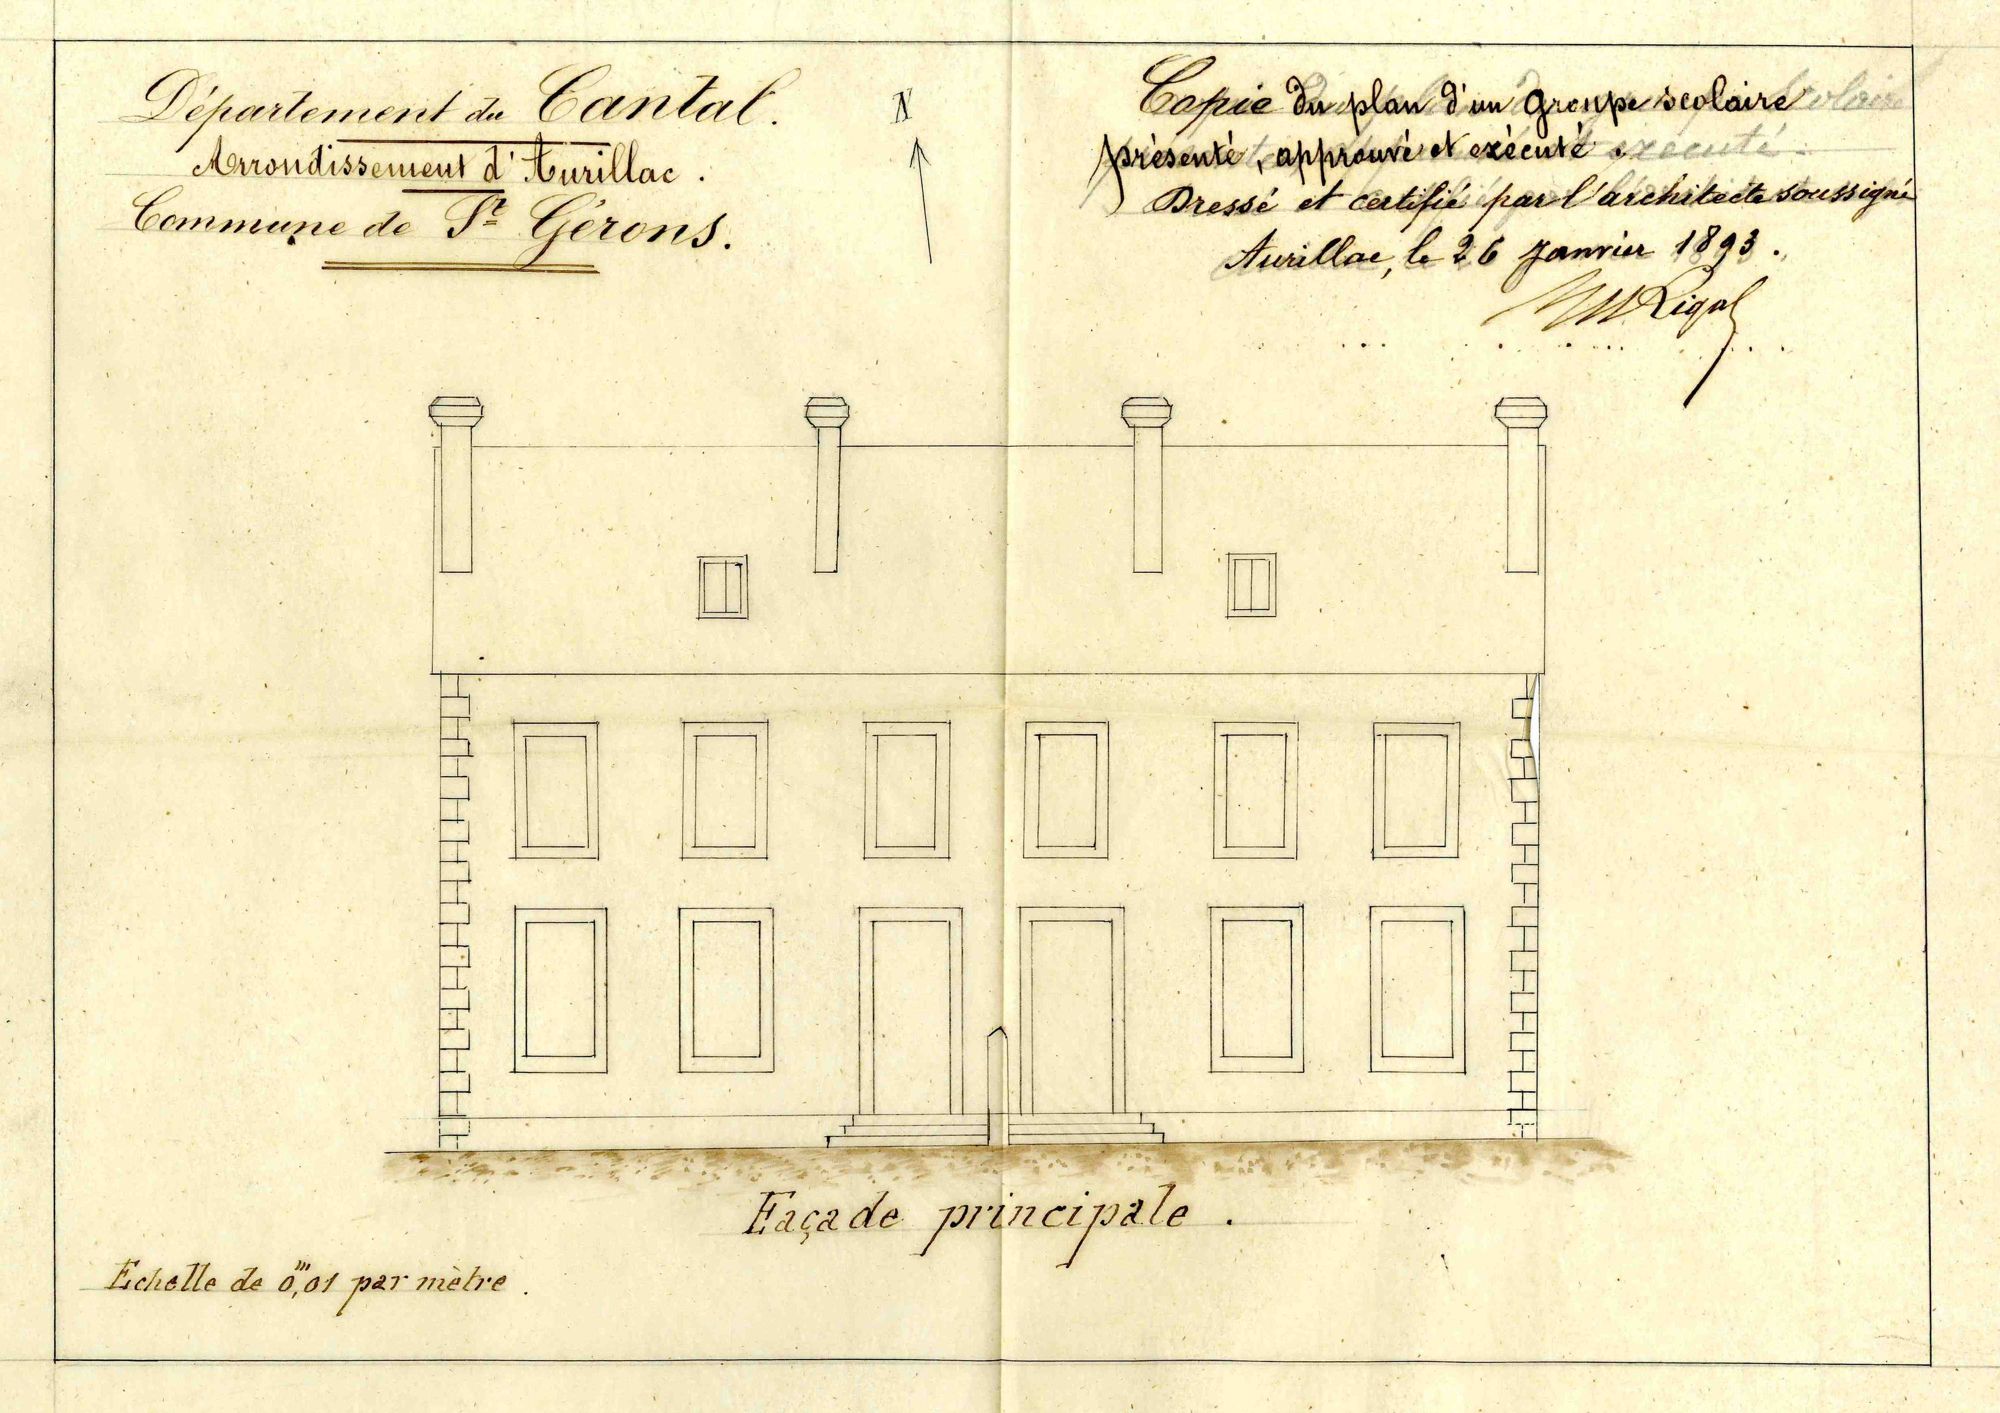 Département du Cantal.
Arrondissement d'Aurillac.
Commune de St Gérons.
N
Copie du plan d'un Groupe scolaire
présenté, approuvé et exécuté.
Dressé et certifié par l'architecte soussigné
Aurillac, le 26 Janvier 1893.
Rigal
Façade principale.
Echelle de 0m,01 par mètre.